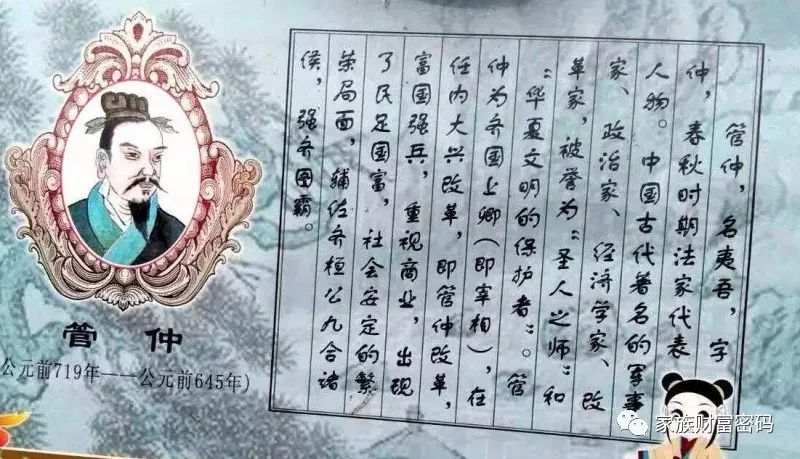 管仲，名夷吾，字
仲，春秋时期法家代表
人物。中国古代著名的军事
家、政治家、经济学家、改
革家，被誉为“圣人之师”和
“华夏文明的保护者”。管
仲为齐国上卿(即宰相)，在
任内大兴改革，即管仲改革，
富国强兵，重视商业，出现
了民足国富，社会安定的繁
荣局面，辅佐齐桓公九合诸
侯，强齐图霸。
管仲
公元前719年——公元前645年)
家族财富密码